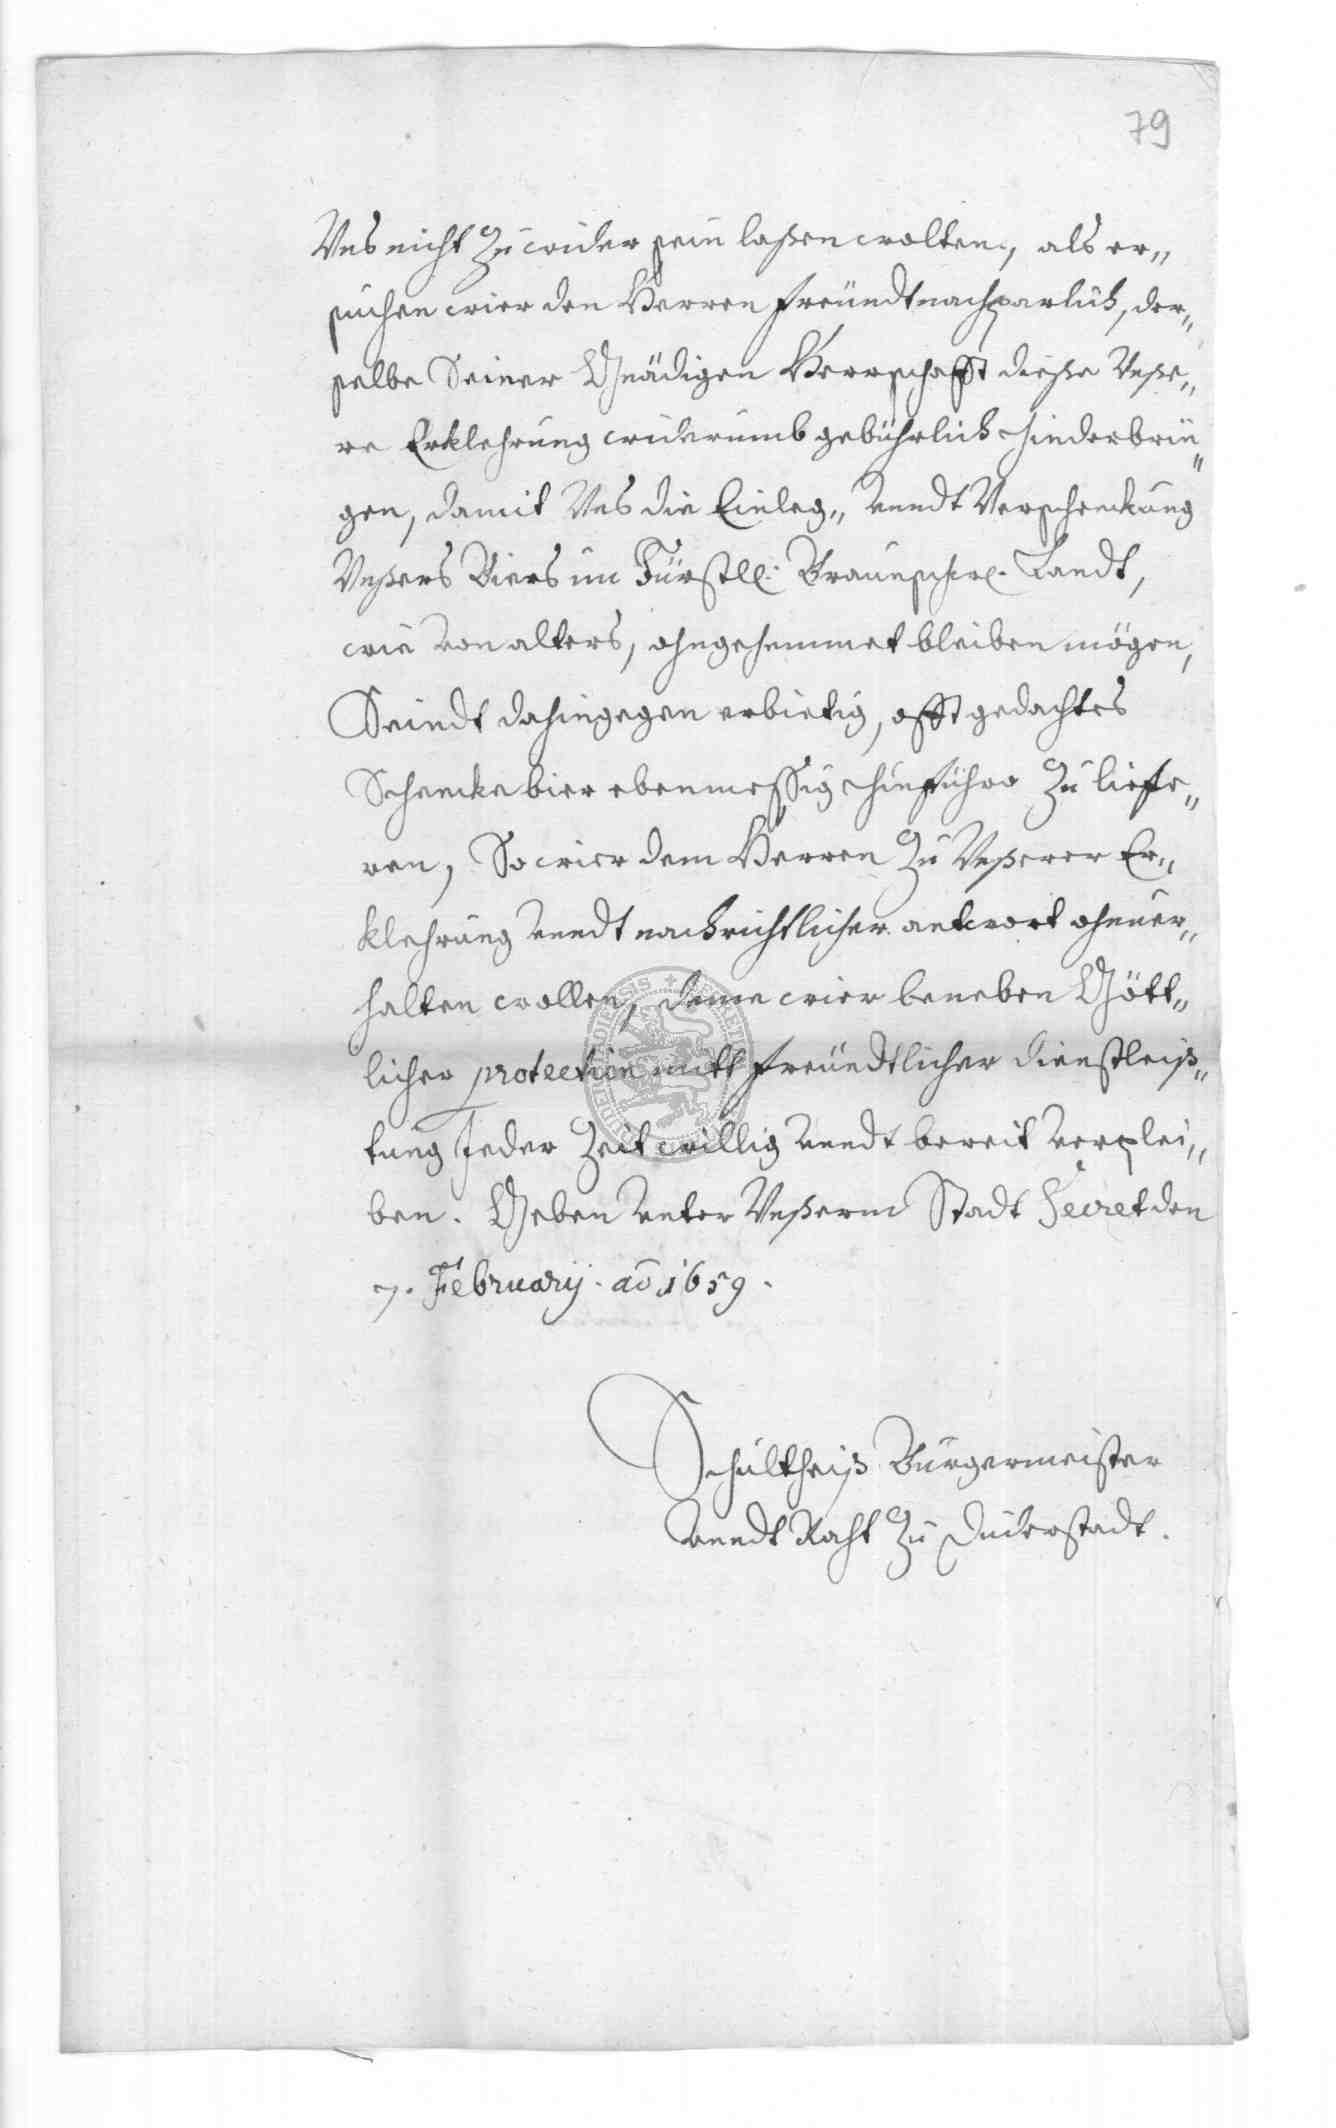 79
Uns nicht Zu wider sein laßen wolten, als er„
suchen wier den Herren freündtnachparlich, der„
selbe Seiner Gnädigen Herrschafft dieße Unße„
re Erklehrung widerumb gebührlich hinderbrin„
gen, damit Uns die Einleg„ undt Verschenckung
Unßers Biers im Fürstl: Braunschw. Landt,
wie von alters, ohngehemmet bleiben mögen,
Seindt dahingegen erbietig, offt gedachtes
Schenckebier ebenmessig hinführo Zu liefe„
ren, So wier dem Herren Zu Unßerer Er„
klehrung undt nachrichtlicher antwort ohnuer„
halten wollen, deme wier beneben Gött„
licher protection mitt freündtlicher dienstleiß„
tung Jeder Zeit willig undt bereit verplei„
ben. Geben unter Unßerm Stadt Secret den
7. February. aō 1659.
Schultheiß Burgermeister
undt Raht Zu Duderstadt.